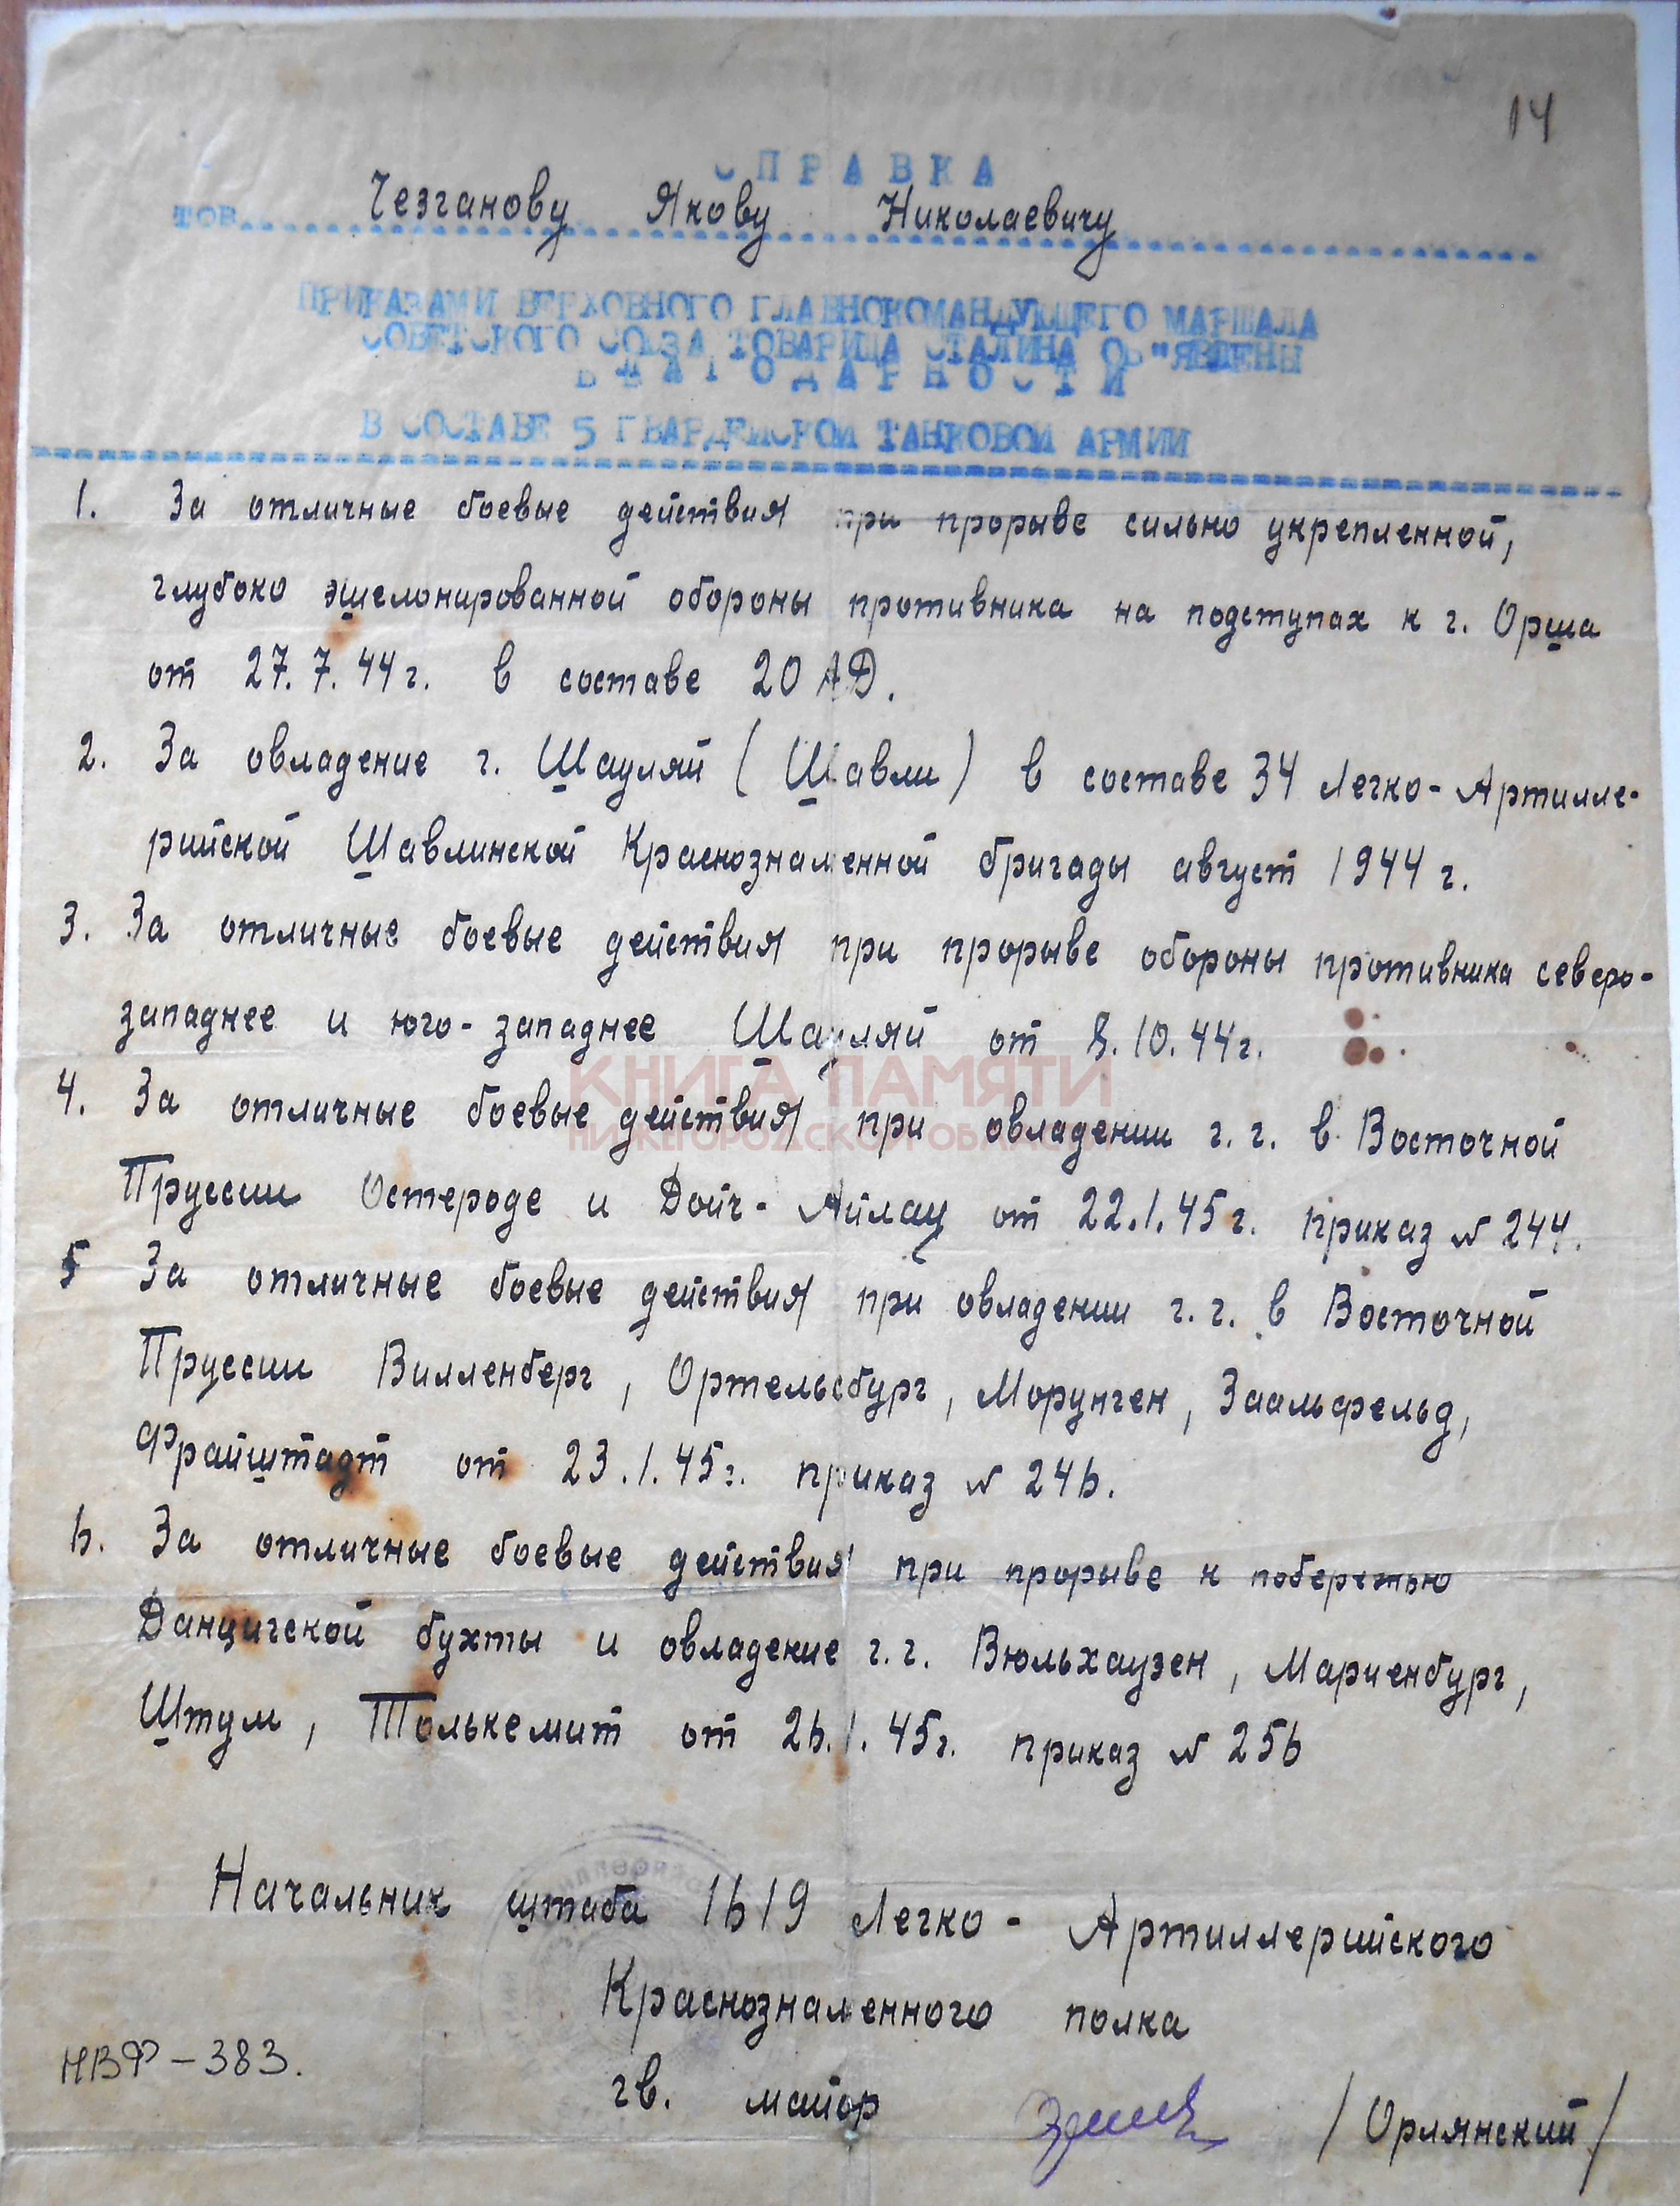 14
СПРАВКА
тов. Чезганову Якову Николаевичу
ПРИКАЗАМИ ВЕРХОВНОГО ГЛАВНОКОМАНДУЮЩЕГО МАРШАЛА
СОВЕТСКОГО СОЮЗА ТОВАРИЩА СТАЛИНА ОБ"ЯВЛЕНЫ
БЛАГОДАРНОСТИ
В СОСТАВЕ 5 ГВАРДЕЙСКОЙ ТАНКОВОЙ АРМИИ
1. За отличные боевые действия при прорыве сильно укрепленной,
глубоко эшелонированной обороны противника на подступах к г. Орша
от 27.7.44г. в составе 20 АД.
2. За овладение г. Шауляй (Шавли) в составе 34 Легко-Артилле-
рийской Шавлинской Краснознаменной бригады август 1944 г.
3. За отличные боевые действия при прорыве обороны противника северо-
западнее и юго-западнее Шауляй от 8.10.44г.
КНИГА ПАМЯТИ
4. За отличные боевые действия при овладении г.г. в Восточной
НИЖЕГОРОДСКОЙ ОБЛАСТИ
Пруссии Остероде и Дойч-Айлау от 22.1.45г. приказ № 244.
5 За отличные боевые действия при овладении г.г. в Восточной
Пруссии Вилленберг, Ортельсбург, Морунген, Заальфельд,
Фрайштадт от 23.1.45г. приказ № 246.
6. За отличные боевые действия при прорыве к побережью
Данцигской бухты и овладение г.г. Вюльхаузен, Мариенбург,
Штум, Толькемит от 26.1.45г. приказ № 256
Начальник штаба 1619 Легко-Артиллерийского
Краснознаменного полка
НВФ-383.
гв. майор /Орлянский/